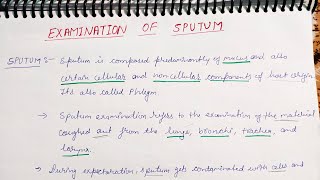 EXAMINATION OF SPUTUM
SPUTUM :- → Sputum is composed predominantly of mucus and also
certain cellular and noncellular components of host origin.
Its also called Phlegm
→ Sputum examination refers to the examination of the material
coughed out from the lungs, bronchi, trachea, and
larynx.
→ During expectoration, sputum gets contaminated with cells and